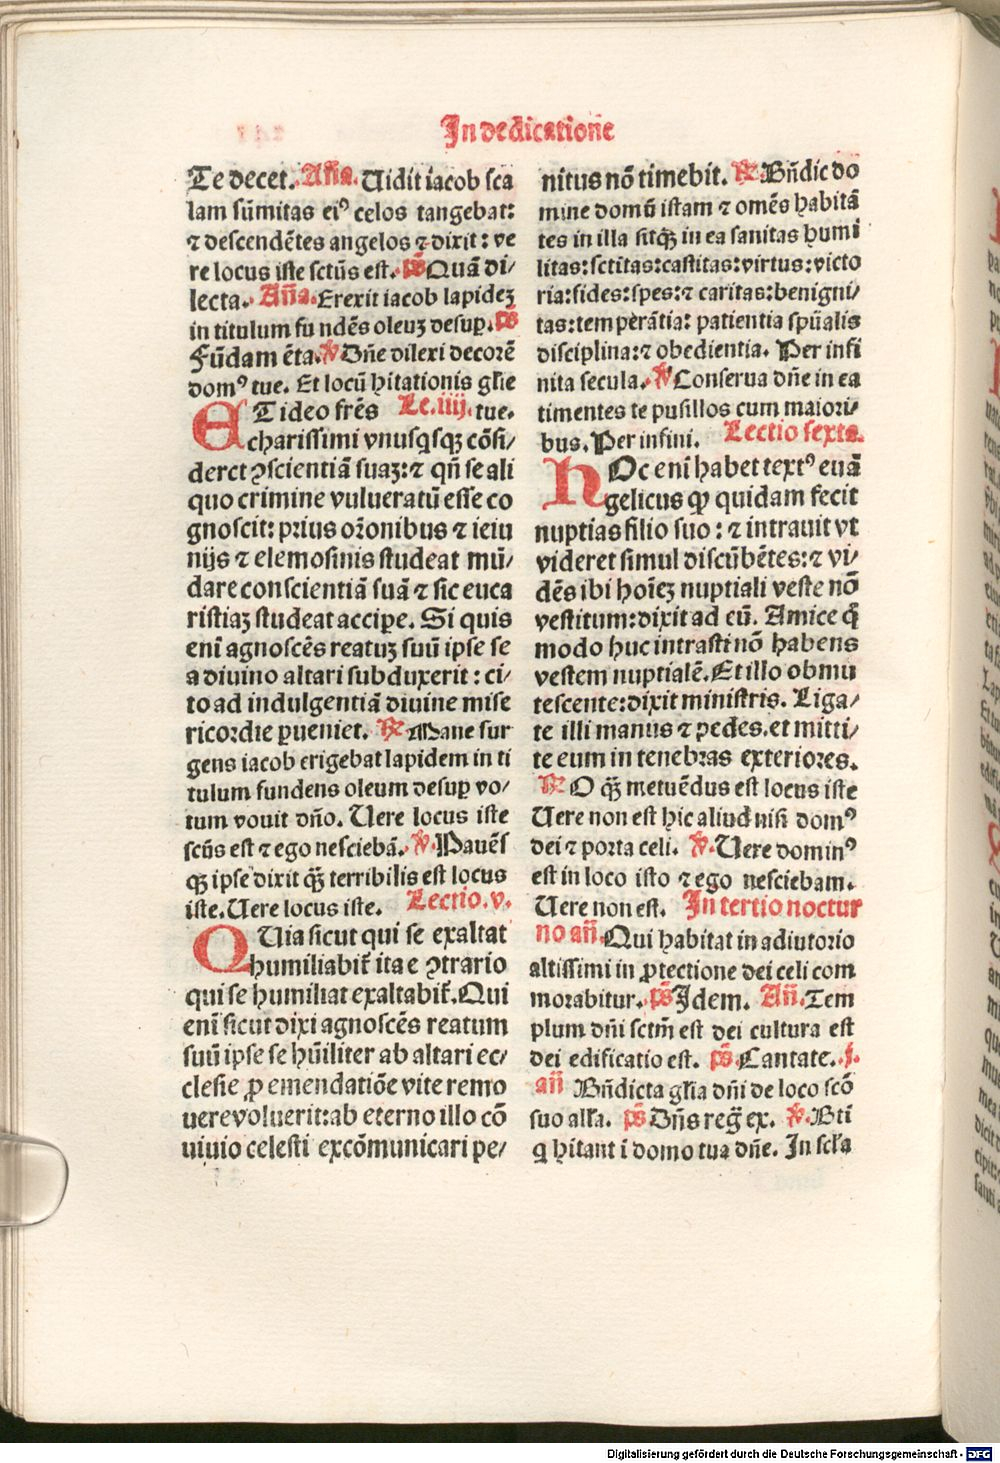 In dedicatiōne
Te decet. Añ̄a. Uidit iacob sca
lam sūmitas eiꝰ celos tangebat:
⁊ descendētes angelos ⁊ dixit: ve
re locus iste sctūs est. ps̄ Quā di/
lecta. Añ̄a. Erexit iacob lapideꝫ
in titulum fundēs oleuꝫ desuꝑ. ps̄
Fūdamēta. ℣ Dn̄e dilexi decorē
domꝰ tue. Et locū hitationis gl̄ie
ET ideo frēs Le.iiij. tue.
charissimi vnusqsqꝫ cōsi/
deret ꝯscientiā suaꝫ: ⁊ qn̄ se ali
quo crimine vulueratū esse co
gnoscit: prius or̄onibus ⁊ ieiu
nijs ⁊ elemosinis studeat mū/
dare conscientiā suā ⁊ sic euca
ristiaꝫ studeat accipe. Si quis
enī agnoscēs reatuꝫ suū ipse se
a diuino altari subduxerit: ci/
to ad indulgentiā diuine mise
ricordie ꝑueniet. ℟ Mane sur
gens iacob erigebat lapidem in ti
tulum fundens oleum desuꝑ vo/
tum vouit dn̄o. Uere locus iste
scūs est ⁊ ego nesciebā. ℣. Pauēs
qꝫ ipse dixit q̄ꝫ terribilis est locus
iste. Uere locus iste. Lectio.v.
QUia sicut qui se exaltat
humiliabit̄ ita e ꝯtrario
qui se humiliat exaltabit̄. Qui
enī sicut dixi agnoscēs reatum
suū ipse se hūiliter ab altari ec/
clesie ꝓ emendatiōe vite remo
uere voluerit: ab eterno illo cō
uiuio celesti excōmunicari pe/
nitus nō timebit. ℟. Bn̄dic do
mine domū istam ⁊ omēs habitā
tes in illa sitqꝫ in ea sanitas humi
litas: sctītas: castitas: virtus: victo
ria: fides: spes: ⁊ caritas: benigni/
tas: temperātia: patientia spūalis
disciplina: ⁊ obedientia. Per infi
nita secula. ℣ Conserua dn̄e in ea
timentes te pusillos cum maiori/
bus. Per infini. Lectio sexta.
HOc enī habet textꝰ euā
gelicus qꝫ quidam fecit
nuptias filio suo: ⁊ intrauit vt
videret simul discūbētes: ⁊ vi/
dēs ibi hoīeꝫ nuptiali veste nō
vestitum: dixit ad eū. Amice q̄
modo huc intrasti nō habens
vestem nuptialē. Et illo obmu
tescente: dixit ministris. Liga/
te illi manus ⁊ pedes. et mitti/
te eum in tenebras exteriores.
℟ O q̄ꝫ metuēdus est locus iste
Uere non est hic aliud nisi domꝰ
dei ⁊ porta celi. ℣. Uere dominꝰ
est in loco isto ⁊ ego nesciebam.
Uere non est. In tertio noctur
no an̄. Qui habitat in adiutorio
altissimi in ꝓtectione dei celi com
morabitur. ps̄ Idem. An̄. Tem
plum dn̄i sctm̄ est dei cultura est
dei edificatio est. ps̄ Cantate. j.
an̄ Bn̄dicta gl̄ia dn̄i de loco scō
suo all̄a. ps̄ Dn̄s reḡ ex. ℣. Bti
q hitant i domo tua dn̄e. In scl̄a
Digitalisierung gefördert durch die Deutsche Forschungsgemeinschaft - DFG